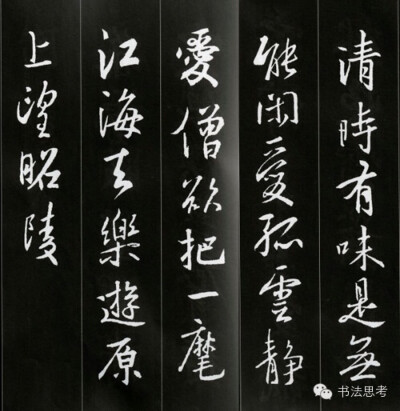 清時有味是無
能閑愛孤雲静
愛僧欲把一麾
江海去樂遊原
上望昭陵
书法思考